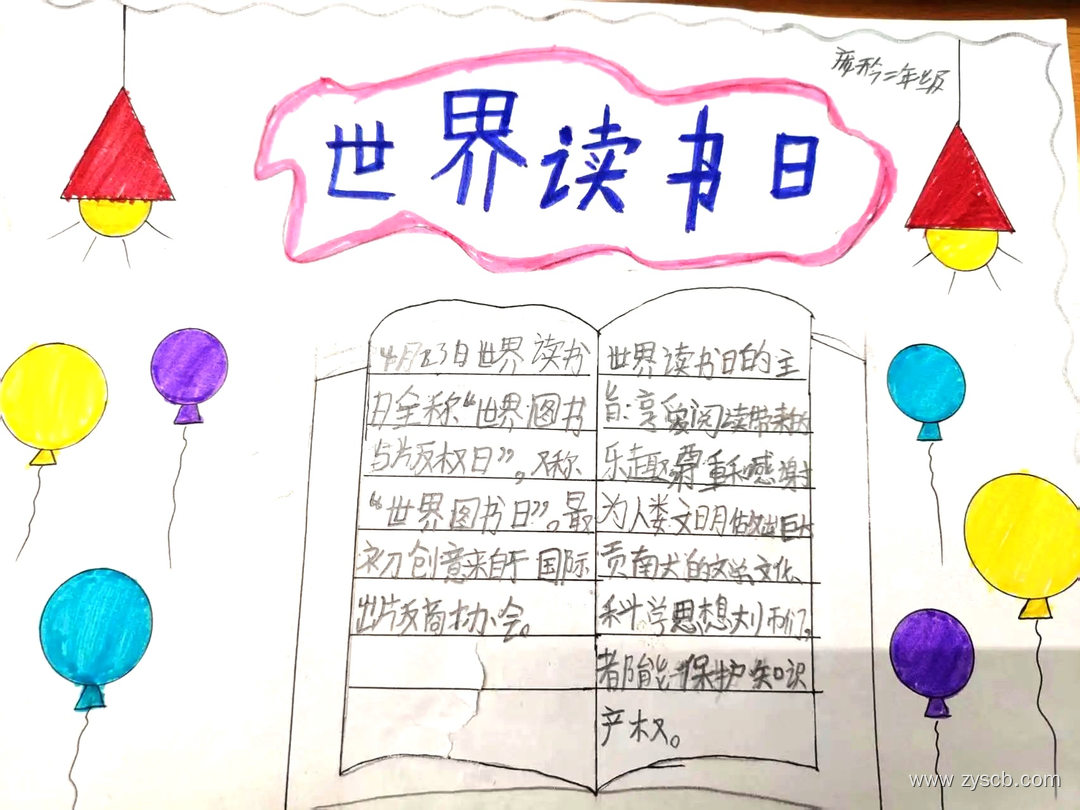 二年级
世界读书日
4月23日世界读书
日全称“世界图书
与版权日”,又称
“世界图书日”。最
初创意来自于国际
出版商协会。
世界读书日的主
旨:享受阅读带来的
乐趣,尊重和感谢
为人类文明做出巨大
贡献的文学、文化、
科学思想大师们,
都能保护知识
产权。
www.zyscb.com